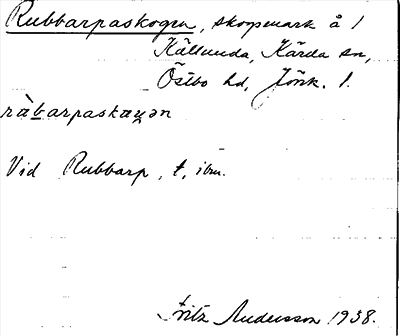 Rubbarpaskogen, skogsmark å 1
Källunda, Kärda sn,
Östbo hd, Jönk. l.
ràbarpaskaɯən
Vid Rubbarp, t, ibm.
Fritz Andersson 1938.